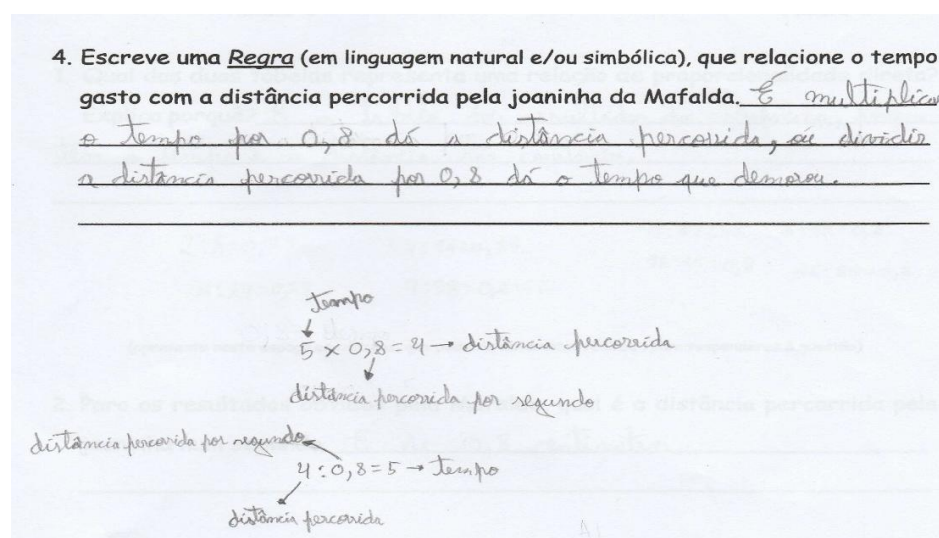 4. Escreve uma Regra (em linguagem natural e/ou simbólica), que relacione o tempo
gasto com a distância percorrida pela joaninha da Mafalda. É multiplicar
o tempo por 0,8 dá a distância percorrida, ou dividir
a distância percorrida por 0,8 dá o tempo que demorou.
tempo
5 x 0,8 = 4 → distância percorrida
distância percorrida por segundo
distância percorrida por segundo
4 : 0,8 = 5 → tempo
distância percorrida